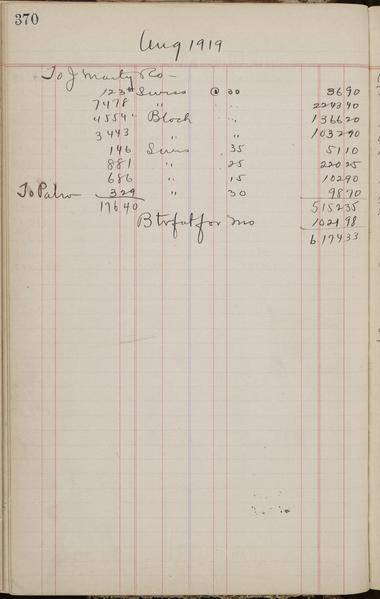 370
Aug 1919
To J Marty Co —
123# Swiss @ 30 3690
7478 " " 224340
4554 " Block " 136620
3443 " " 103290
146 Swiss 35 5110
881 " 25 22025
686 " 15 10290
To Patro 329 " 30 9870
17640 515235
Btrfat for Mo 102198
617433